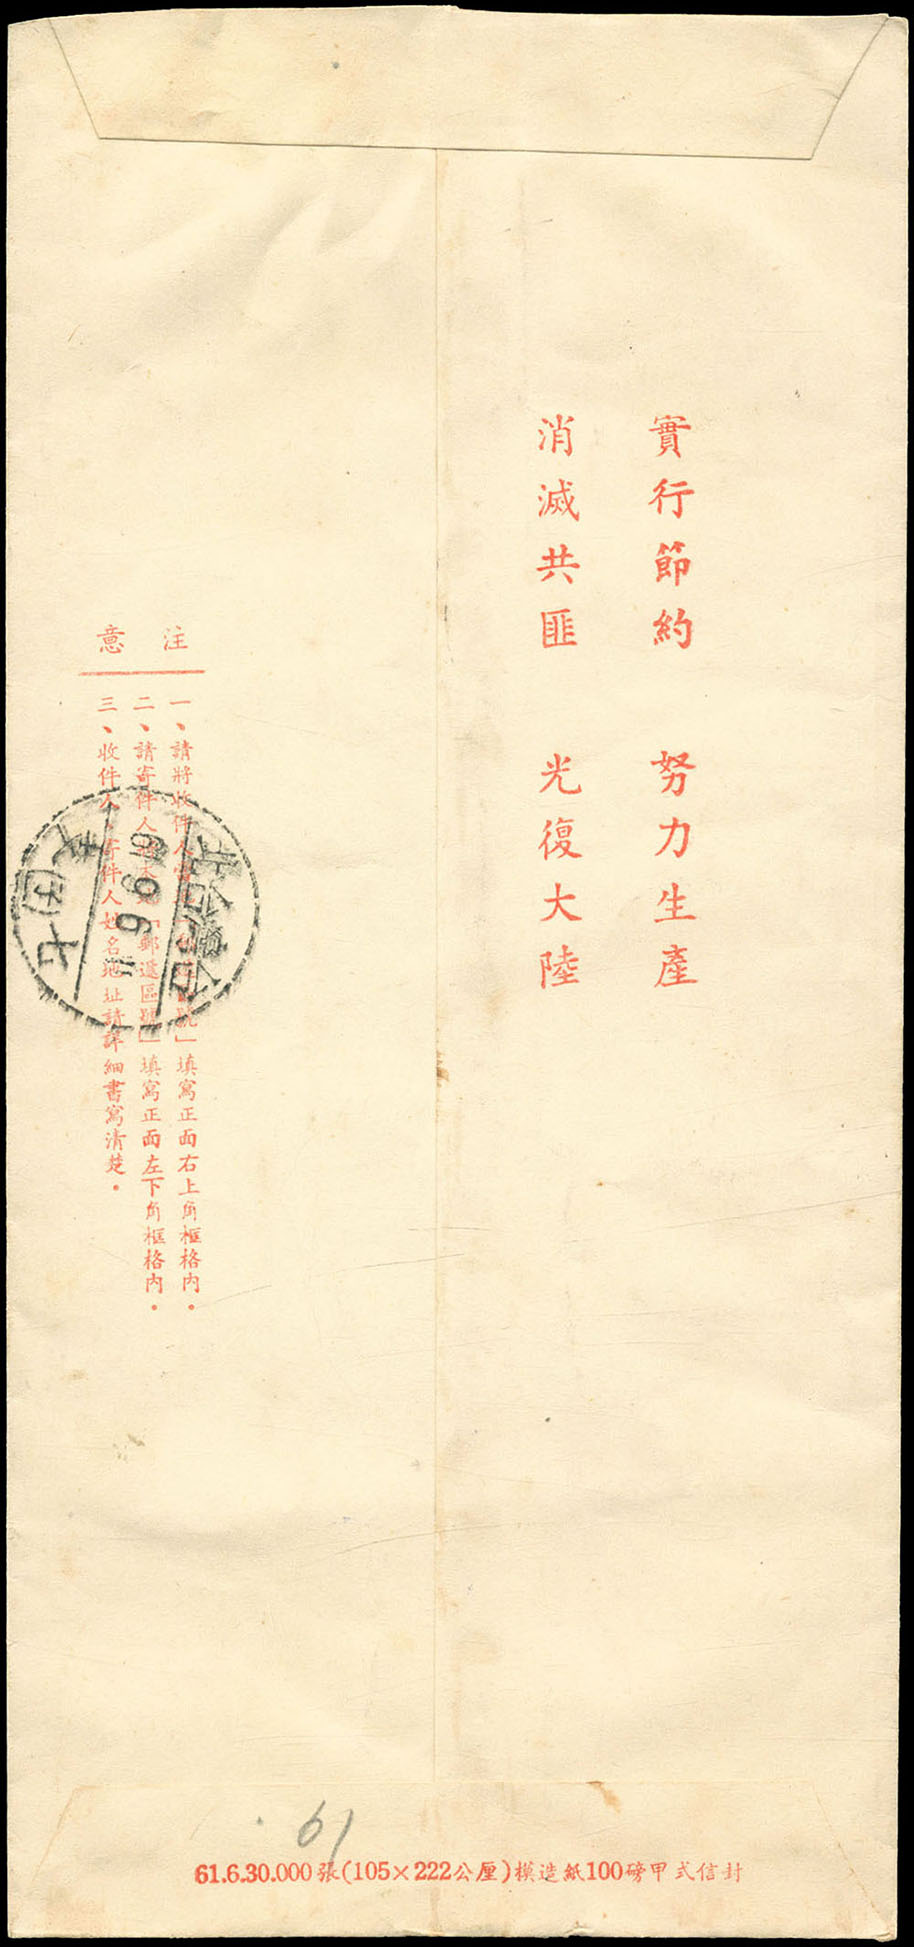 實行節約　努力生產
消滅共匪　光復大陸
注意
一、請將收件人　　　　　　號」填寫正面右上角框格內。
二、請寄件人將　　「郵遞區號」填寫正面左下角框格內。
三、收件人、寄件人姓名地址請詳細書寫清楚。
臺灣 台北
61
61.6.30.000張(105×222公厘)模造紙100磅甲式信封